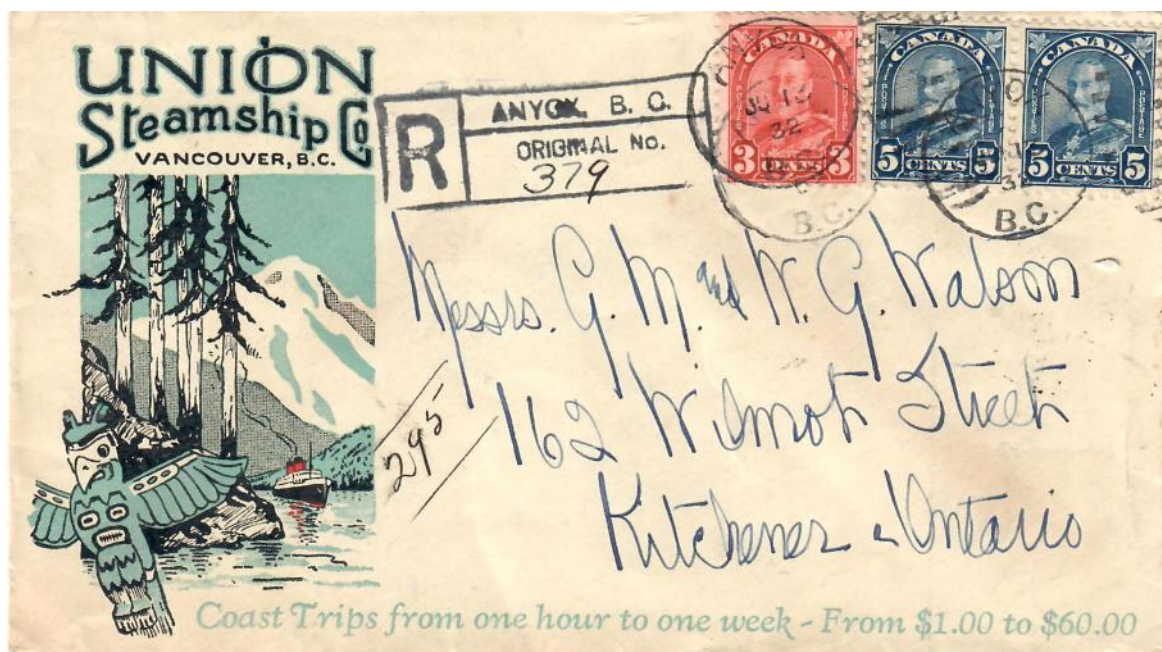 UNION
Steamship Co
VANCOUVER, B.C.
R
ANYOX, B. C.
ORIGINAL No.
379
CANADA
3 CENTS 3
CANADA
POSTES POSTAGE
5 CENTS 5
CANADA
POSTES POSTAGE
5 CENTS 5
JU 13
32
B.C.
B.C.
Messrs. G. M. and W. G. Watson
162 Wilmot Street
Kitchener - Ontario
295
Coast Trips from one hour to one week - From $1.00 to $60.00